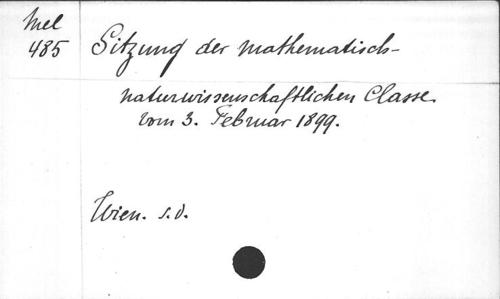 Mel
485
Sitzung der mathematisch-
naturwissenschaftlichen Classe
vom 3. Februar 1899.
Wien. s.d.